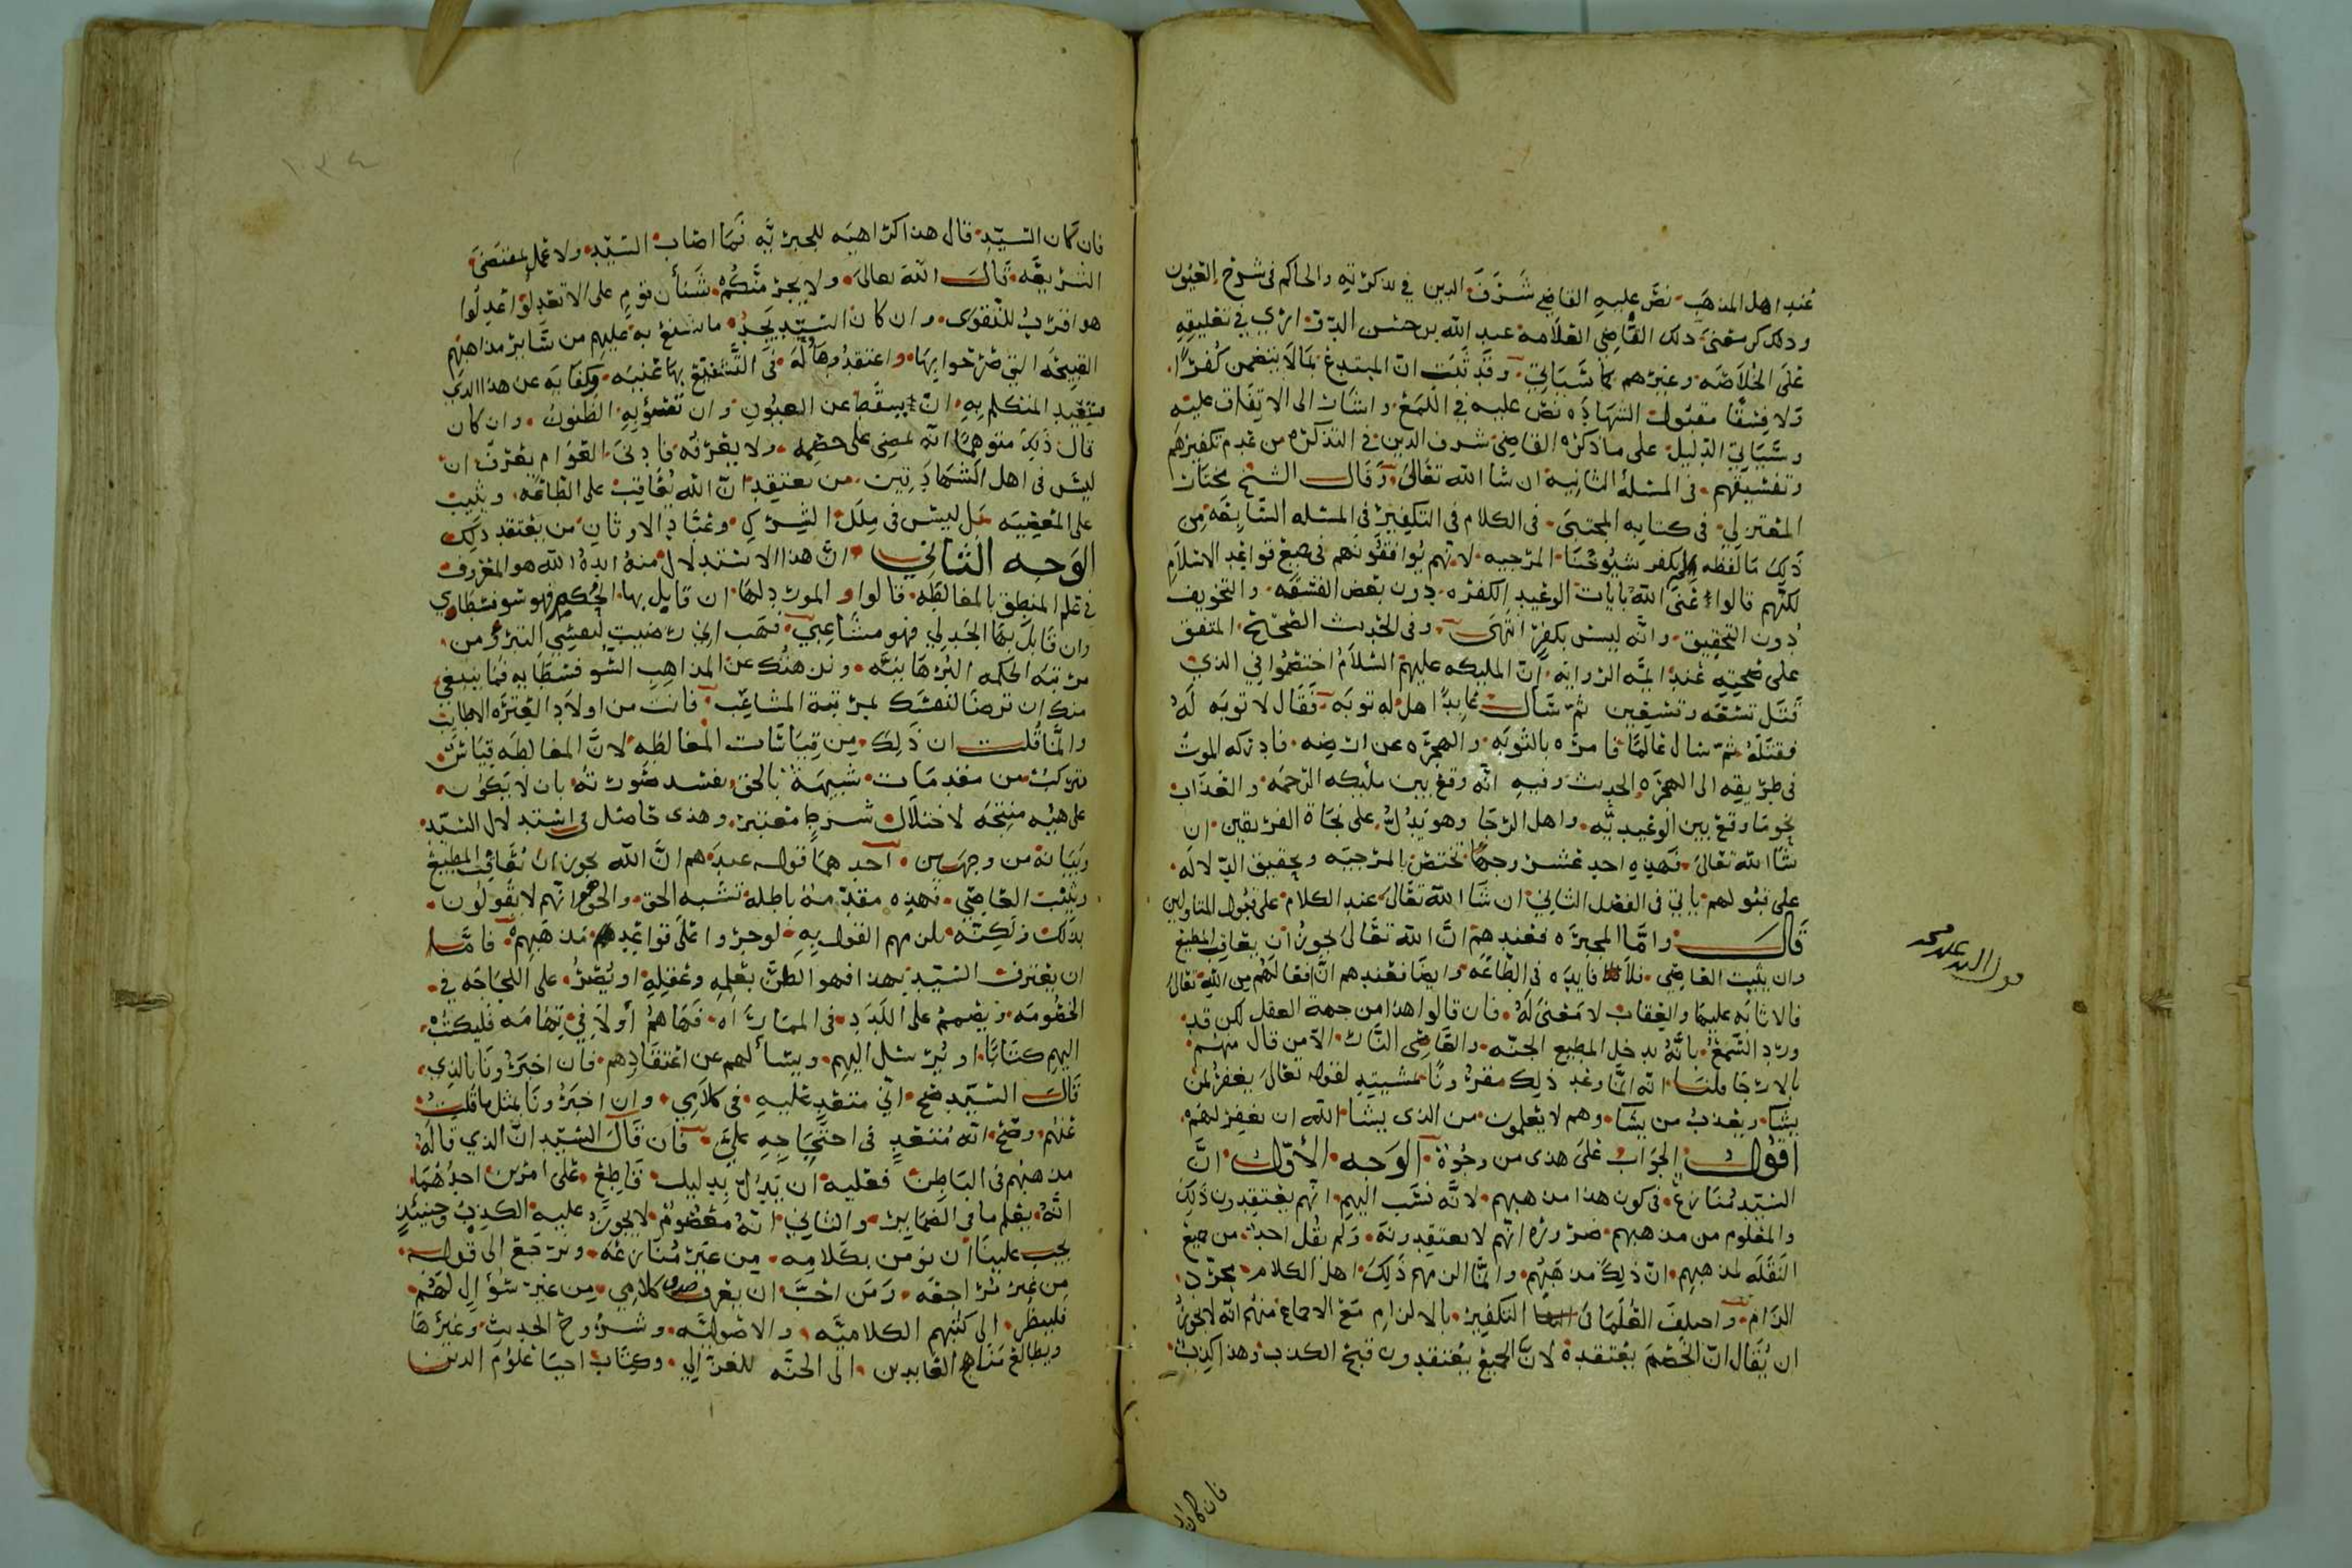 عند اهل المذهب نص عليه القاضي شرف الدين في تذكرته والحاكم في شرح العيون
وذكر معنى ذلك القاضي العلامة عبد الله بن حسن الدواري في تعليقه
على الخلاصه وغيرهم كما سياتي وقد ثبت ان المبتدع بما لا يتضمن كفرًا
ولا فسقًا مقبول الشهاده نص عليه في اللمع واشار الى الاتفاق عليه
وسياتي الدليل على ما ذكره القاضي شرف الدين في التذكره من عدم تكفيرهم
وتفسيقهم في المسئلة الثانية ان شا الله تعالى وقال الشيخ مختار
المعتزلي في كتابه المجتبى في الكلام في التكفير في المسئله السابعه من
ذلك ما لفظه لم يكفر شيوخنا المرجيه لانهم يوافقونهم في جميع قواعد الاسلام
لكنهم قالوا عنى الله بايات الوعيد الكفره دون بعض الفسقه والتخويف
دون التحقيق وانه ليس بكفر انتهى وفي الحديث الصحيح المتفق
على صحته عند ايمة الروايه ان المليكه عليهم السلام اختصموا في الذي
قتل تسعه وتسعين ثم سال عابدًا هل له توبه فقال لا توبه له
فقتله ثم سال عالمًا فامره بالتوبه والهجره عن ارضه فادركه الموت
في طريقه الى الهجره الحديث وفيه انه وقع بين مليكه الرحمه والعذاب
نحو ما وقع بين الوعيديه واهل الرجا وهو يدل على نجاة الفريقين ان
شا الله تعالى فهذه احد عشر وجهًا تختص بالمرجيه وتحقيق الدلاله
على قبولهم ياتي في الفصل الثاني ان شا الله تعالى عند الكلام على قبول المتاولين
قال واما المجبره فعندهم ان الله تعالى يجوز ان يعاقب المطيع
وان يثيب العاصي فلا فايده في الطاعه وايضا فعندهم ان افعالهم من الله تعالى
فالاثابه عليها والعقاب لا معنى له فان قالوا هذا من جهة العقل لكن قد
ورد السمع بانه يدخل المطيع الجنه والعاصي النار الا من قال منهم
بالارجا قلنا انه انما وعد ذلك مقرونًا بمشيته لقوله تعالى يغفر لمن
يشا ويعذب من يشا وهم لا يعلمون من الذي يشا الله ان يغفر لهم
اقول الجواب على هذا من وجوه الوجه الأول ان
السيد منازع في كون هذا مذهبهم لانه نسب اليهم انهم يعتقدون ذلك
والمعلوم من مذهبهم ضروره انهم لا يعتقدونه ولم يقل احد من جميع
النقله لمذهبهم ان ذلك مذهبهم وانما الزمهم ذلك اهل الكلام مجرد
الزام واختلف العلما في التكفير بالالزام مع الاجماع منهم انه لا يجوز
ان يقال ان الخصم يعتقده لان الجميع يعتقدون قبح الكذب وهذا كذب
فان كان
فان كان السيد قال هذا كراهيه للجبريه فما اصاب السيد ولا عمل بمقتضى
الشريعه قال الله تعالى ولا يجرمنكم شنأن قوم على الا تعدلوا اعدلوا
هو اقرب للتقوى وان كان السيد يجد ما شنع به عليهم من ساير مذاهبهم
القبيحه التي صرحوا بها واعتقدوها فله في التشنيع بها غنيه وكفايه عن هذا الذي
يتقيد المتكلم به ان يسقط عن العيون وان تسؤ به الظنون وان كان
قال ذلك متوهمًا انه يمضي على خصمه ولا يعرفه فادنى العوام يعرف ان
ليس في اهل الشهادتين من يعتقد ان الله يعاقب على الطاعه ويثيب
على المعصيه بل ليس في ملل الشرك وعباد الاوثان من يعتقد ذلك
الوجه الثاني ان هذا الاستدلال منه ايده الله هو المعروف
في علم المنطق بالمغالطه قالوا والمورد لها ان قابل بها الحكيم فهو سوفسطاوي
وان قابل بها الجدلي فهو مشاغبي فهب اني رضيت لنفسي النزول من
مرتبة الحكمه البرهانيه ولم هنك عن المذاهب السوفسطايه فما ينبغي
منك ان ترضا لنفسك بمرتبة المشاغب فانت من اولاد العتره الاطايب
وانما قلت ان ذلك من قياسات المغالطه لان المغالطه قياس
تركب من مقدمات شبيهة بالحق يفسد صورته بان لا يكون
على هيئه منتجه لاختلال شرط معتبر وهذا حاصل في استدلال السيد
وبيانه من وجهين احدهما قوله عندهم ان الله يجوز ان يعاقب المطيع
ويثيب العاصي فهذه مقدمة باطله تشبه الحق والحق انهم لا يقولون
بذلك ولكنه يلزمهم القول به لو جروا على قواعد مذهبهم فاما
ان يعترف السيد بهذا فهو الظن بعلمه وعقله او يصر على اللجاجه في
الخصومه ويصمم على اللدد في المماراه فها هم أولا في تهامه فليكتب
اليهم كتابًا او يرسل اليهم ويسألهم عن اعتقادهم فان اخبرونا بالذي
قال السيد صح اني متعد عليه في كلامي وان اخبرونا بمثل ما قلت
عنهم وضح انه متعدٍ في احتجاجه علي فان قال السيد ان الذي قاله
مذهبهم في الباطن فعليه ان يدل بدليل قاطع على امرين احدهما
انه يعلم ما في الضماير والثاني انه معصوم لا يجوز عليه الكذب وحينئذٍ
يجب علينا ان نومن بكلامه من غير منازعه ونرجع الى قوله
من غير مراجعه ومن احب ان يعرف صدق كلامي من غير سؤال لهم
فلينظر الى كتبهم الكلاميه والاصوليه وشروح الحديث وغيرها
ويطالع منهاج العابدين الى الجنه للغزالي وكتاب احيا علوم الدين